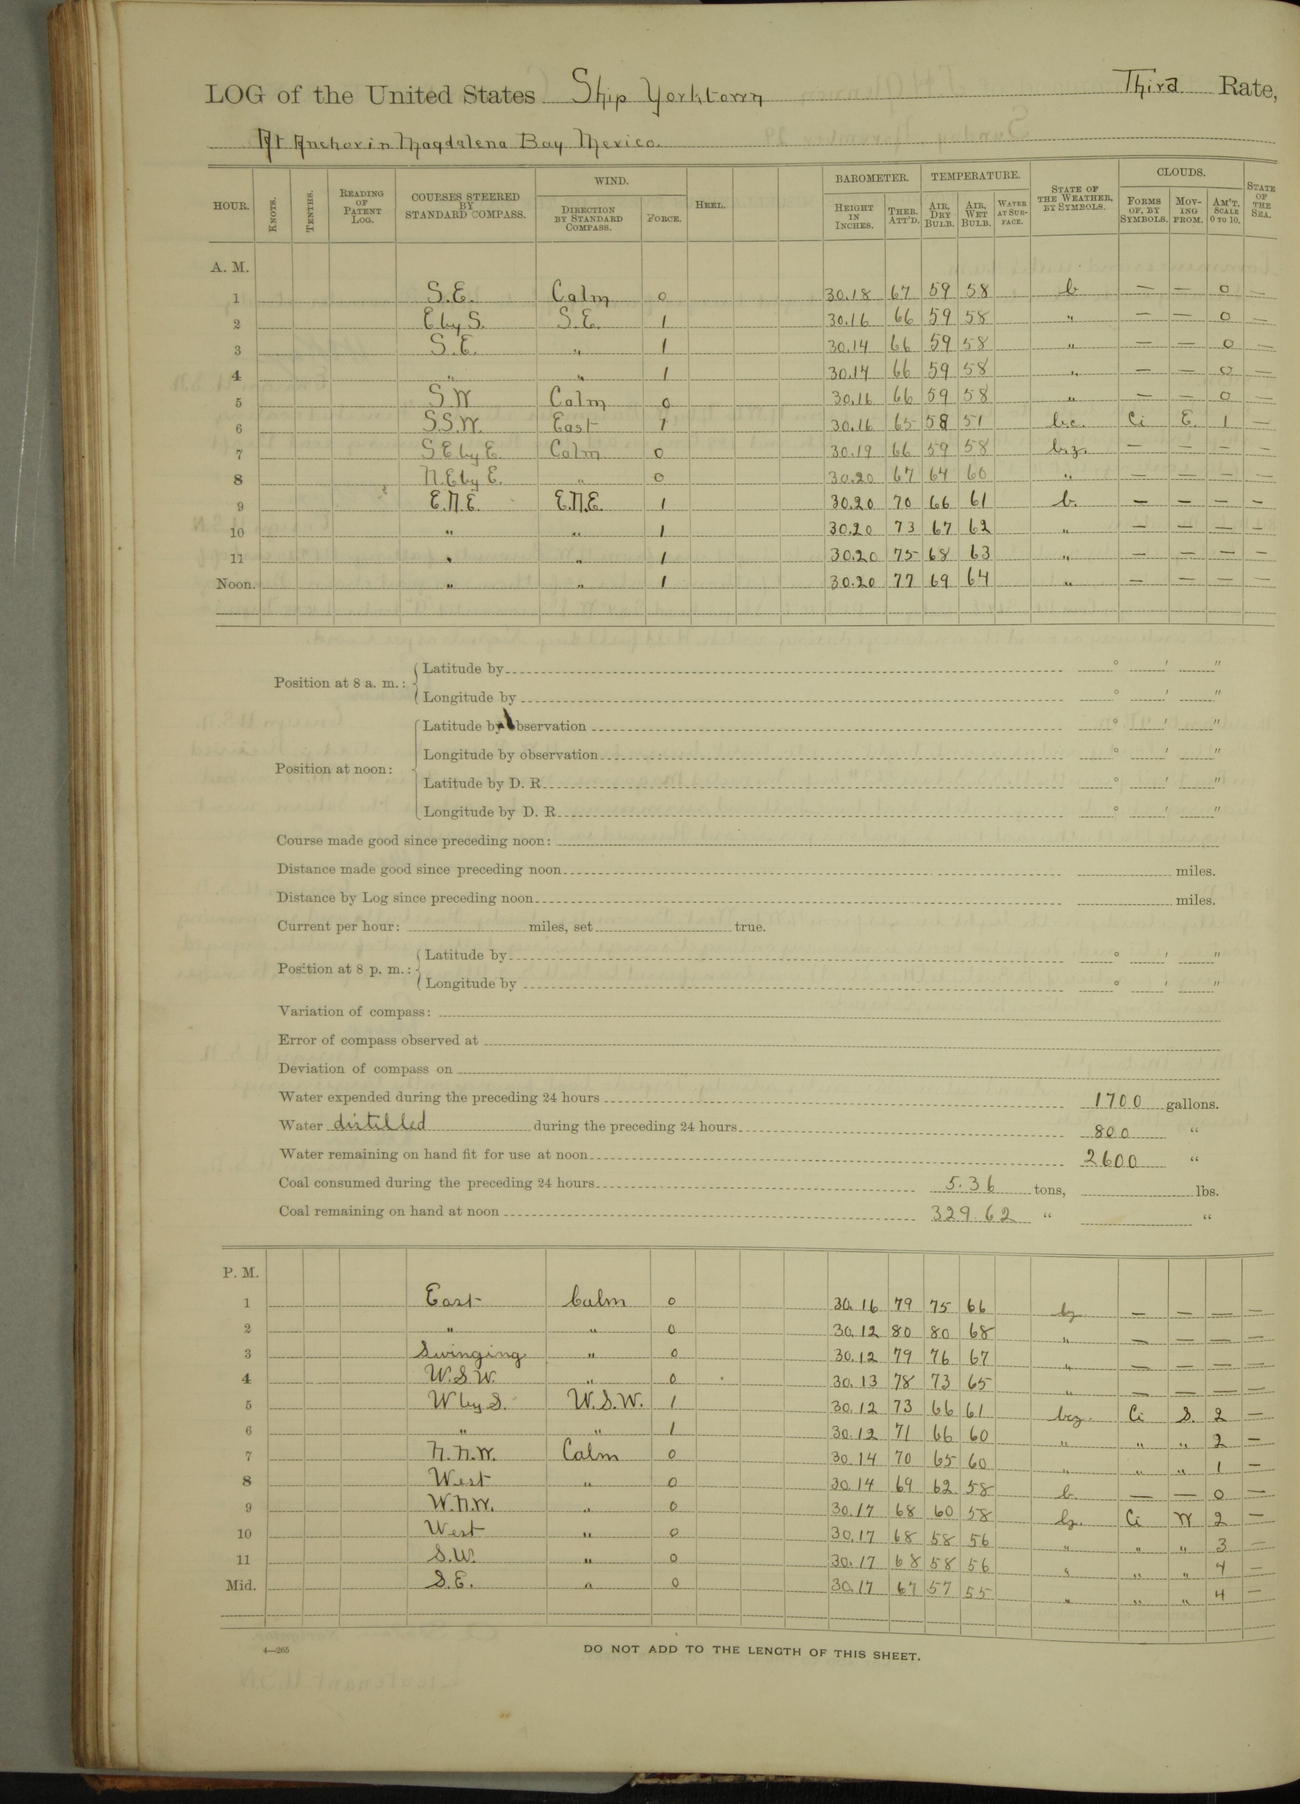 LOG of the United States Ship Yorktown Third Rate,
At Anchor in Magdalena Bay Mexico.
HOUR. KNOTS. TENTHS. READING OF PATENT LOG. COURSES STEERED BY STANDARD COMPASS. WIND. DIRECTION BY STANDARD COMPASS. FORCE. HEEL. BAROMETER. HEIGHT IN INCHES. THER. ATT'D. TEMPERATURE. AIR, DRY BULB. AIR, WET BULB. WATER AT SURFACE. STATE OF THE WEATHER, BY SYMBOLS. CLOUDS. FORMS OF, BY SYMBOLS. MOVING FROM. AM'T. SCALE 0 TO 10. STATE OF THE SEA.
A. M.
1 S.E. Calm 0 30.18 67 59 58 b — — 0 —
2 E by S. S.E. 1 30.16 66 59 58 " — — 0 —
3 S.E. " 1 30.14 66 59 58 " — — 0 —
4 " " 1 30.14 66 59 58 " — — 0 —
5 S.W Calm 0 30.16 66 59 58 " — — 0 —
6 S.S.W. East 1 30.16 65 58 57 b.c. Ci E. 1 —
7 S.E by E. Calm 0 30.19 66 59 58 b.z. — — — —
8 N.E by E. " 0 30.20 67 64 60 " — — — —
9 E.N.E. E.N.E. 1 30.20 70 66 61 b. — — — —
10 " " 1 30.20 73 67 62 " — — — —
11 " " 1 30.20 75 68 63 " — — — —
Noon. " " 1 30.20 77 69 64 " — — — —
Position at 8 a. m.: Latitude by ° ' "
Longitude by ° ' "
Position at noon: Latitude by observation ° ' "
Longitude by observation ° ' "
Latitude by D. R. ° ' "
Longitude by D. R. ° ' "
Course made good since preceding noon:
Distance made good since preceding noon miles.
Distance by Log since preceding noon miles.
Current per hour: miles, set true.
Position at 8 p. m.: Latitude by ° ' "
Longitude by ° ' "
Variation of compass:
Error of compass observed at
Deviation of compass on
Water expended during the preceding 24 hours 1700 gallons.
Water distilled during the preceding 24 hours 800 "
Water remaining on hand fit for use at noon 2600 "
Coal consumed during the preceding 24 hours 5.36 tons, lbs.
Coal remaining on hand at noon 329.62 " "
P. M.
1 East Calm 0 30.16 79 75 66 bz — — — —
2 " " 0 30.12 80 80 68 " — — — —
3 Swinging " 0 30.12 79 76 67 " — — — —
4 W.S.W. " 0 30.13 78 73 65 " — — — —
5 W by S. W.S.W. 1 30.12 73 66 61 bcz. Ci S. 2 —
6 " " 1 30.12 71 66 60 " " " 2 —
7 N.N.W. Calm 0 30.14 70 65 60 " " " 1 —
8 West " 0 30.14 69 62 58 b. — — 0 —
9 W.N.W. " 0 30.17 68 60 58 bz. Ci W 2 —
10 West " 0 30.17 68 58 56 " " " 3 —
11 S.W. " 0 30.17 68 58 56 " " " 4 —
Mid. S.E. " 0 30.17 67 57 55 " " " 4 —
4—265 DO NOT ADD TO THE LENGTH OF THIS SHEET.